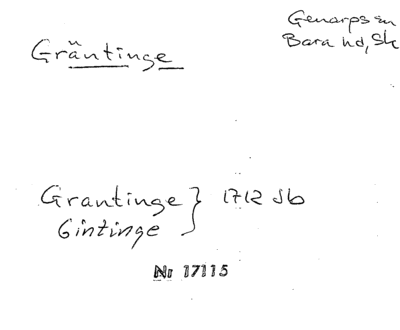 Genarps sn
Bara hd, Sk
Gräntinge
Grantinge } 1712 Jb
Gintinge
Nr 17115